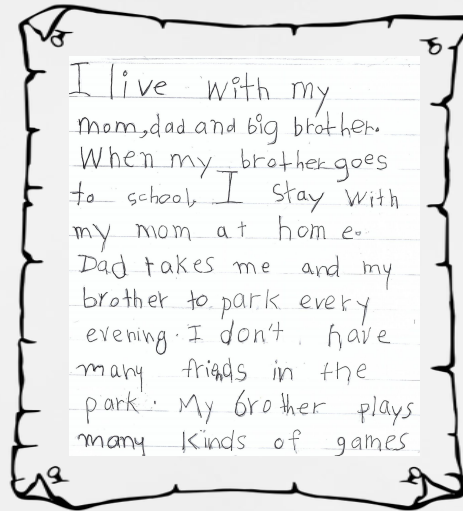 I live with my
mom, dad and big brother.
When my brother goes
to school, I stay with
my mom at home.
Dad takes me and my
brother to park every
evening. I don't have
many friends in the
park. My brother plays
many kinds of games